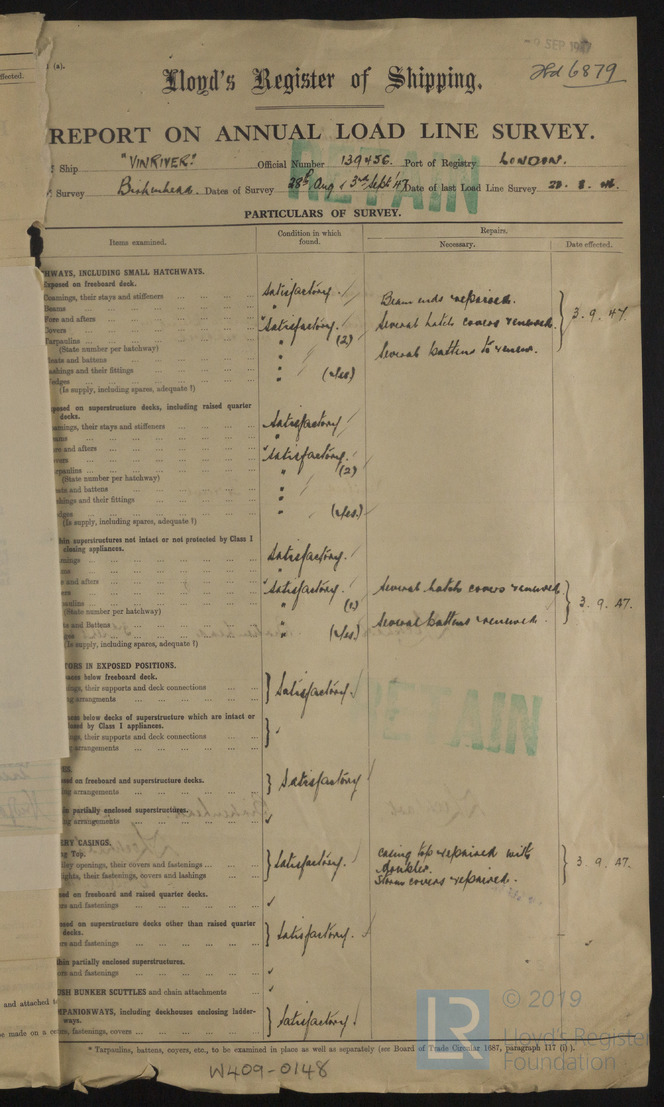 SEP 19
6879
(a).
ffected.
Lloyd's Register of Shipping.
REPORT ON ANNUAL LOAD LINE SURVEY.
RETAIN
Ship "VINRIVER" Official Number 139456. Port of Registry LONDON.
Survey Birkenhead. Dates of Survey 28th Aug & 3rd Sept '47 Date of last Load Line Survey 28. 8. 46.
PARTICULARS OF SURVEY.
Items examined. Condition in which found. Repairs.
Necessary. Date effected.
HWAYS, INCLUDING SMALL HATCHWAYS.
xposed on freeboard deck.
Coamings, their stays and stiffeners Satisfactory.
Beams " Beam ends repaired.
Fore and afters
Covers "Satisfactory. Several hatch covers renewed. } 3. 9. 47.
Tarpaulins " (2)
(State number per hatchway)
leats and battens " Several battens to renew.
ashings and their fittings "
edges " (Yes)
(Is supply, including spares, adequate ?)
posed on superstructure decks, including raised quarter
decks.
amings, their stays and stiffeners Satisfactory
ams "
re and afters
vers "Satisfactory.
rpaulins " (2)
(State number per hatchway)
ats and battens "
shings and their fittings "
dges " (Yes.)
(Is supply, including spares, adequate ?)
hin superstructures not intact or not protected by Class I
closing appliances.
mings Satisfactory.
ms "
e and afters
"Satisfactory. Several hatch covers renewed } 3. 9. 47.
paulins "
(State number per hatchway)
ts and Battens " Several battens renewed.
ges " (Yes)
(Is supply, including spares, adequate ?)
TORS IN EXPOSED POSITIONS.
aces below freeboard deck.
ings, their supports and deck connections } Satisfactory.
ng arrangements
aces below decks of superstructure which are intact or
losed by Class I appliances.
ngs, their supports and deck connections
g arrangements
RETAIN
sed on freeboard and superstructure decks.
ing arrangements } Satisfactory
in partially enclosed superstructures.
ing arrangements
ERY CASINGS.
ng Top.
dley openings, their covers and fastenings } Satisfactory. Casing top repaired with doubler. } 3. 9. 47.
ights, their fastenings, covers and lashings Storm covers repaired.
sed on freeboard and raised quarter decks.
ors and fastenings
osed on superstructure decks other than raised quarter
decks.
ors and fastenings } Satisfactory.
hin partially enclosed superstructures.
ors and fastenings
USH BUNKER SCUTTLES and chain attachments
MPANIONWAYS, including deckhouses enclosing ladder-
ways.
ors, fastenings, covers } Satisfactory.
and attached t
be made on a c
* Tarpaulins, battens, covers, etc., to be examined in place as well as separately (see Board of Trade Circular 1687, paragraph 117 (i) ).
W409-0148
LR
© 2019
Lloyd's Register
Foundation